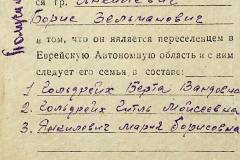 ся гр.
Борис Зельманович
в том, что он является переселенцем в
Еврейскую Автономную область и с ним
следует его семья, в составе:
1. Гольдрейх Берта Вандовна
2. Гольдрейх Гитль Мойсеевна
3. Янгилович Мария Борисовна